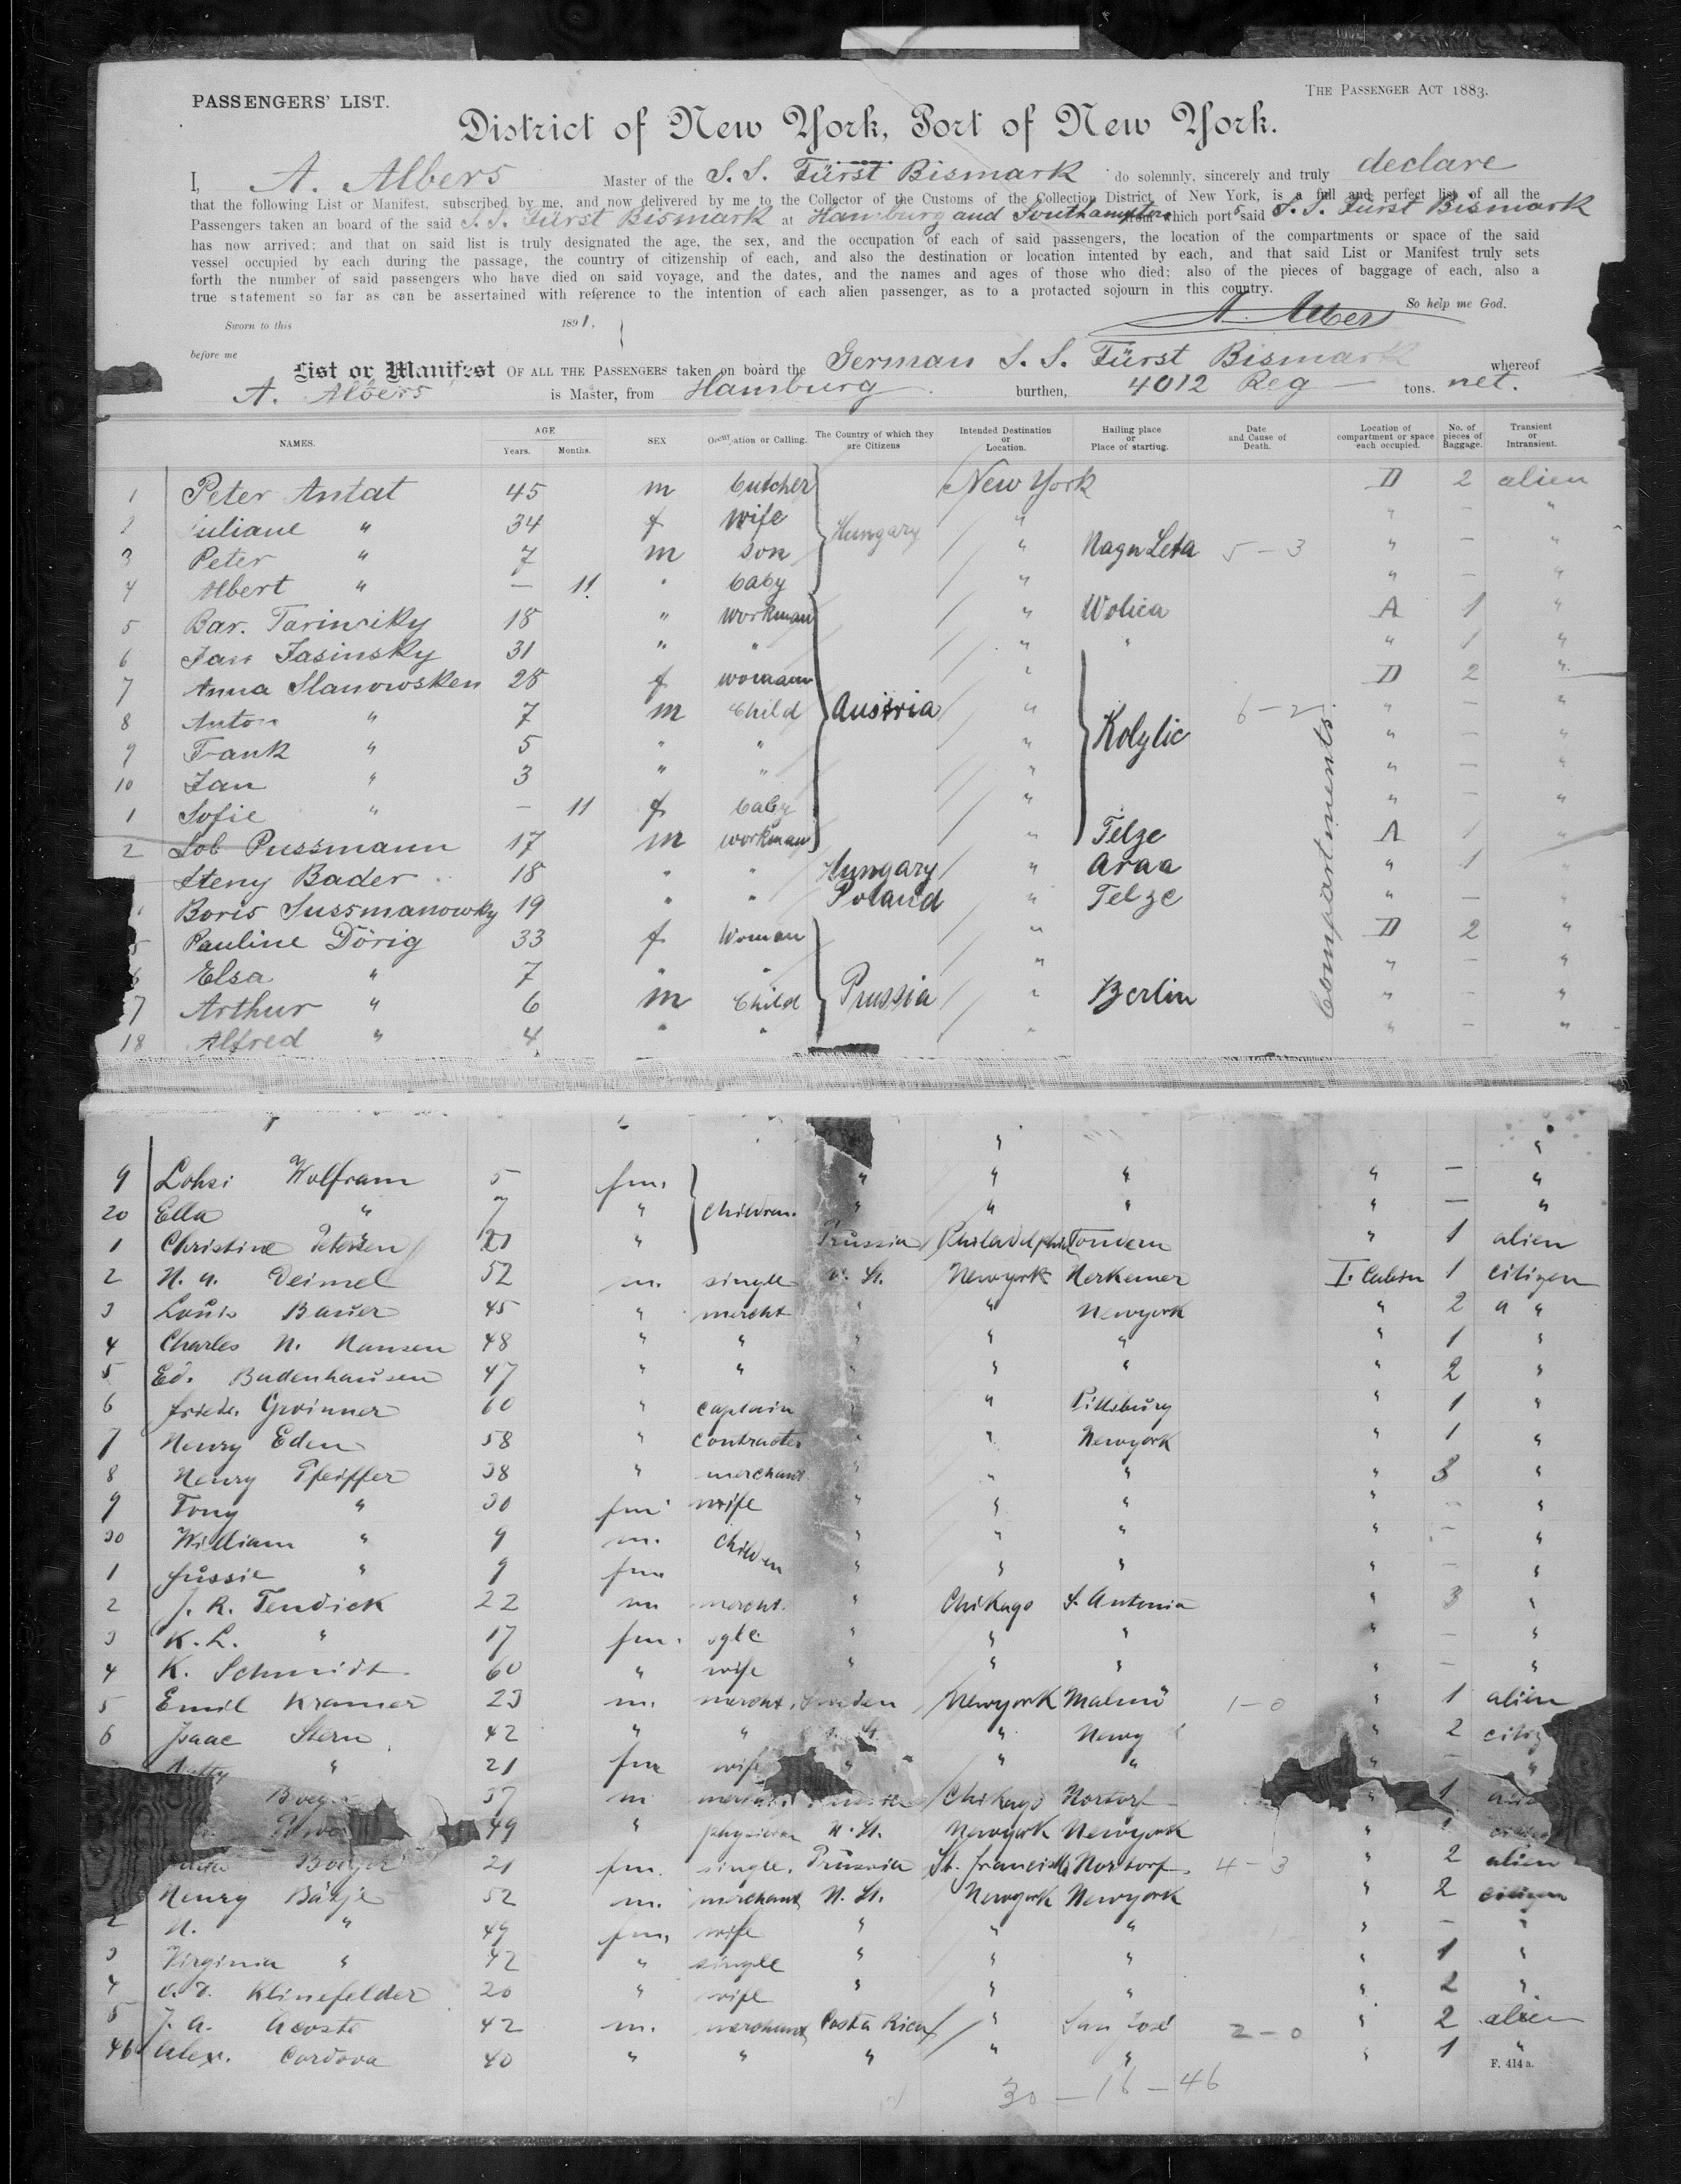 PASSENGERS' LIST.
THE PASSENGER ACT 1883.
District of New York, Port of New York.
I, A. Albers Master of the S. S. Fürst Bismark do solemnly, sincerely and truly declare
that the following List or Manifest, subscribed by me, and now delivered by me to the Collector of the Customs of the Collection District of New York, is a full and perfect list of all the
Passengers taken an board of the said S. S. Fürst Bismark at Hamburg and Southampton from which port said S. S. Fürst Bismark
has now arrived; and that on said list is truly designated the age, the sex, and the occupation of each of said passengers, the location of the compartments or space of the said
vessel occupied by each during the passage, the country of citizenship of each, and also the destination or location intented by each, and that said List or Manifest truly sets
forth the number of said passengers who have died on said voyage, and the dates, and the names and ages of those who died; also of the pieces of baggage of each, also a
true statement so far as can be assertained with reference to the intention of each alien passenger, as to a protacted sojourn in this country.
So help me God.
A. Albers
Sworn to this 1891,
before me
List or Manifest OF ALL THE PASSENGERS taken on board the German S. S. Fürst Bismark whereof
A. Albers is Master, from Hamburg burthen, 4012 Reg — tons. net.
NAMES. AGE Years. Months. SEX Occupation or Calling. The Country of which they are Citizens Intended Destination or Location. Hailing place or Place of starting. Date and Cause of Death. Location of compartment or space each occupied. No. of pieces of Baggage. Transient or Intransient.
1 Peter Antat 45 m butcher New York D 2 alien
2 Juliane " 34 f wife Hungary " " — "
3 Peter " 7 m son " Nagu Leta 5 – 3 " — "
4 Albert " — 11 " baby " " — "
5 Bar. 18 " workman " Wolica A 1 "
6 Jan Jasinsky 31 " " " " " 1 "
7 Anna Slanowsken 28 f woman " D 2 "
8 Anton " 7 m Child Austria " Kolylic 6 – 2 " — "
9 Frank " 5 " " " " — "
10 Jan " 3 " " " " — "
1 Sofie " — 11 f baby " " — "
2 Sob Pussmann 17 m workman " Telze A 1 "
Steny Bader 18 " " Hungary " Araa " 1
Boris Sussmanowky 19 " " Poland " Telze " — "
5 Pauline Dörig 33 f Woman " D 2 "
6 Elsa " 7 " " " " — "
7 Arthur " 6 m Child Prussia " Berlin " — "
18 Alfred " 4 " " " " — "
compartments.
9 Lohsi Wolfram 5 fm. " " " " — "
20 Ella " 7 " children. " " " " — "
1 Christine Petersen 21 " Prussia Philadelphia Tondern " 1 alien
2 N. a. Deimel 52 m. single U. St. Newyork Herkemer I. Cabin 1 citizen
3 Louis Bauer 45 " mercht " " Newyork " 2 a "
4 Charles N. Hansen 48 " " " " " " 1 "
5 Ed. Badenhausen 47 " " " " " " 2 "
6 friedr. Gwinner 60 " captain " " Pittsburg " 1 "
7 Henry Eden 58 " contractor " " Newyork " 1 "
8 Henry Pfeiffer 38 " merchant " " " " 3 "
9 Tony " 30 fm wife " " " " – "
30 William " 9 m. children " " " " – "
1 Jussie " 9 fm " " " " – "
2 J. R. Tendick 22 m mercht. " Chikago S. Antonia " 3 "
3 K. L. " 17 fm. sgle. " " " " – "
4 K. Schmidt 60 " wife " " " " – "
5 Emil Kramer 23 m. mercht. Sweden Newyork Malmö 1 – 0 " 1 alien
6 Isaac Stern 42 " " " Newy " 2
" 21 fm wife " " " " – "
37 m Chikago Nortorf " 1
49 " physician U. St. Newyork Newyork "
21 fm. single. Prussia St. francisko Nortorf 4 – 3 " 2 alien
Henry Bätje 52 m. merchant U. St. Newyork Newyork " 2 citizen
2 " 49 fm. wife " " " " – "
3 Virginia " 42 " single " " " " 1 "
4 Klinefelder 20 " wife " " " " 2 "
5 J. A. Acosta 42 m. merchant Costa Rica " San José 2 – 0 " 2 alien
46 Alex. Cordova 40 " " " " " " 1 "
F. 414 a.
30 – 16 – 46